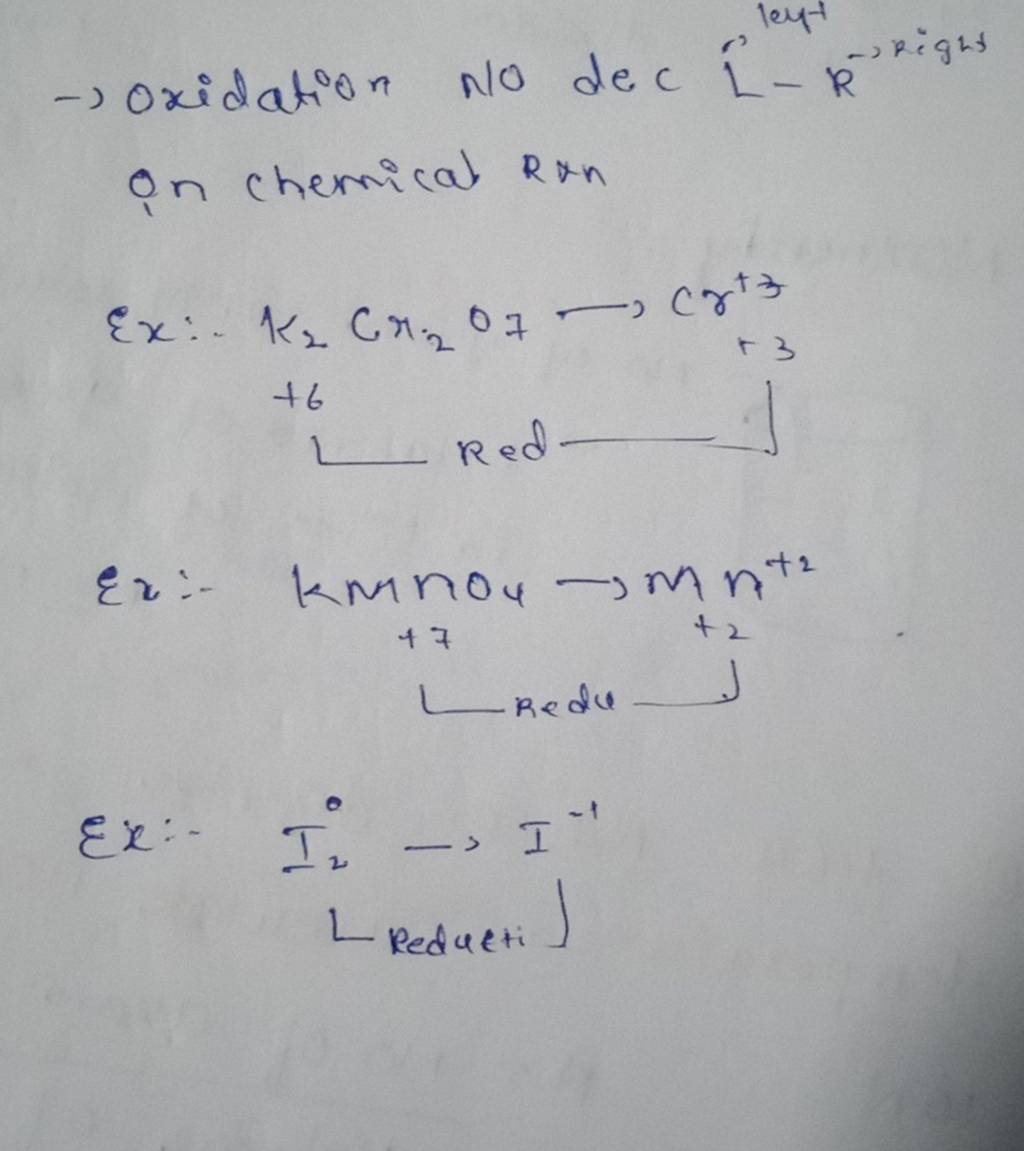 left
-> oxidation N/O dec L - R -> Right
In chemical Rxn
Ex:- K₂ Cr₂ O₇ -> Cr⁺³
+3
+6
Red
Ex:- KMnO₄ -> Mn⁺²
+7 +2
Redu
Ex:- I₂⁰ -> I⁻¹
Reducti